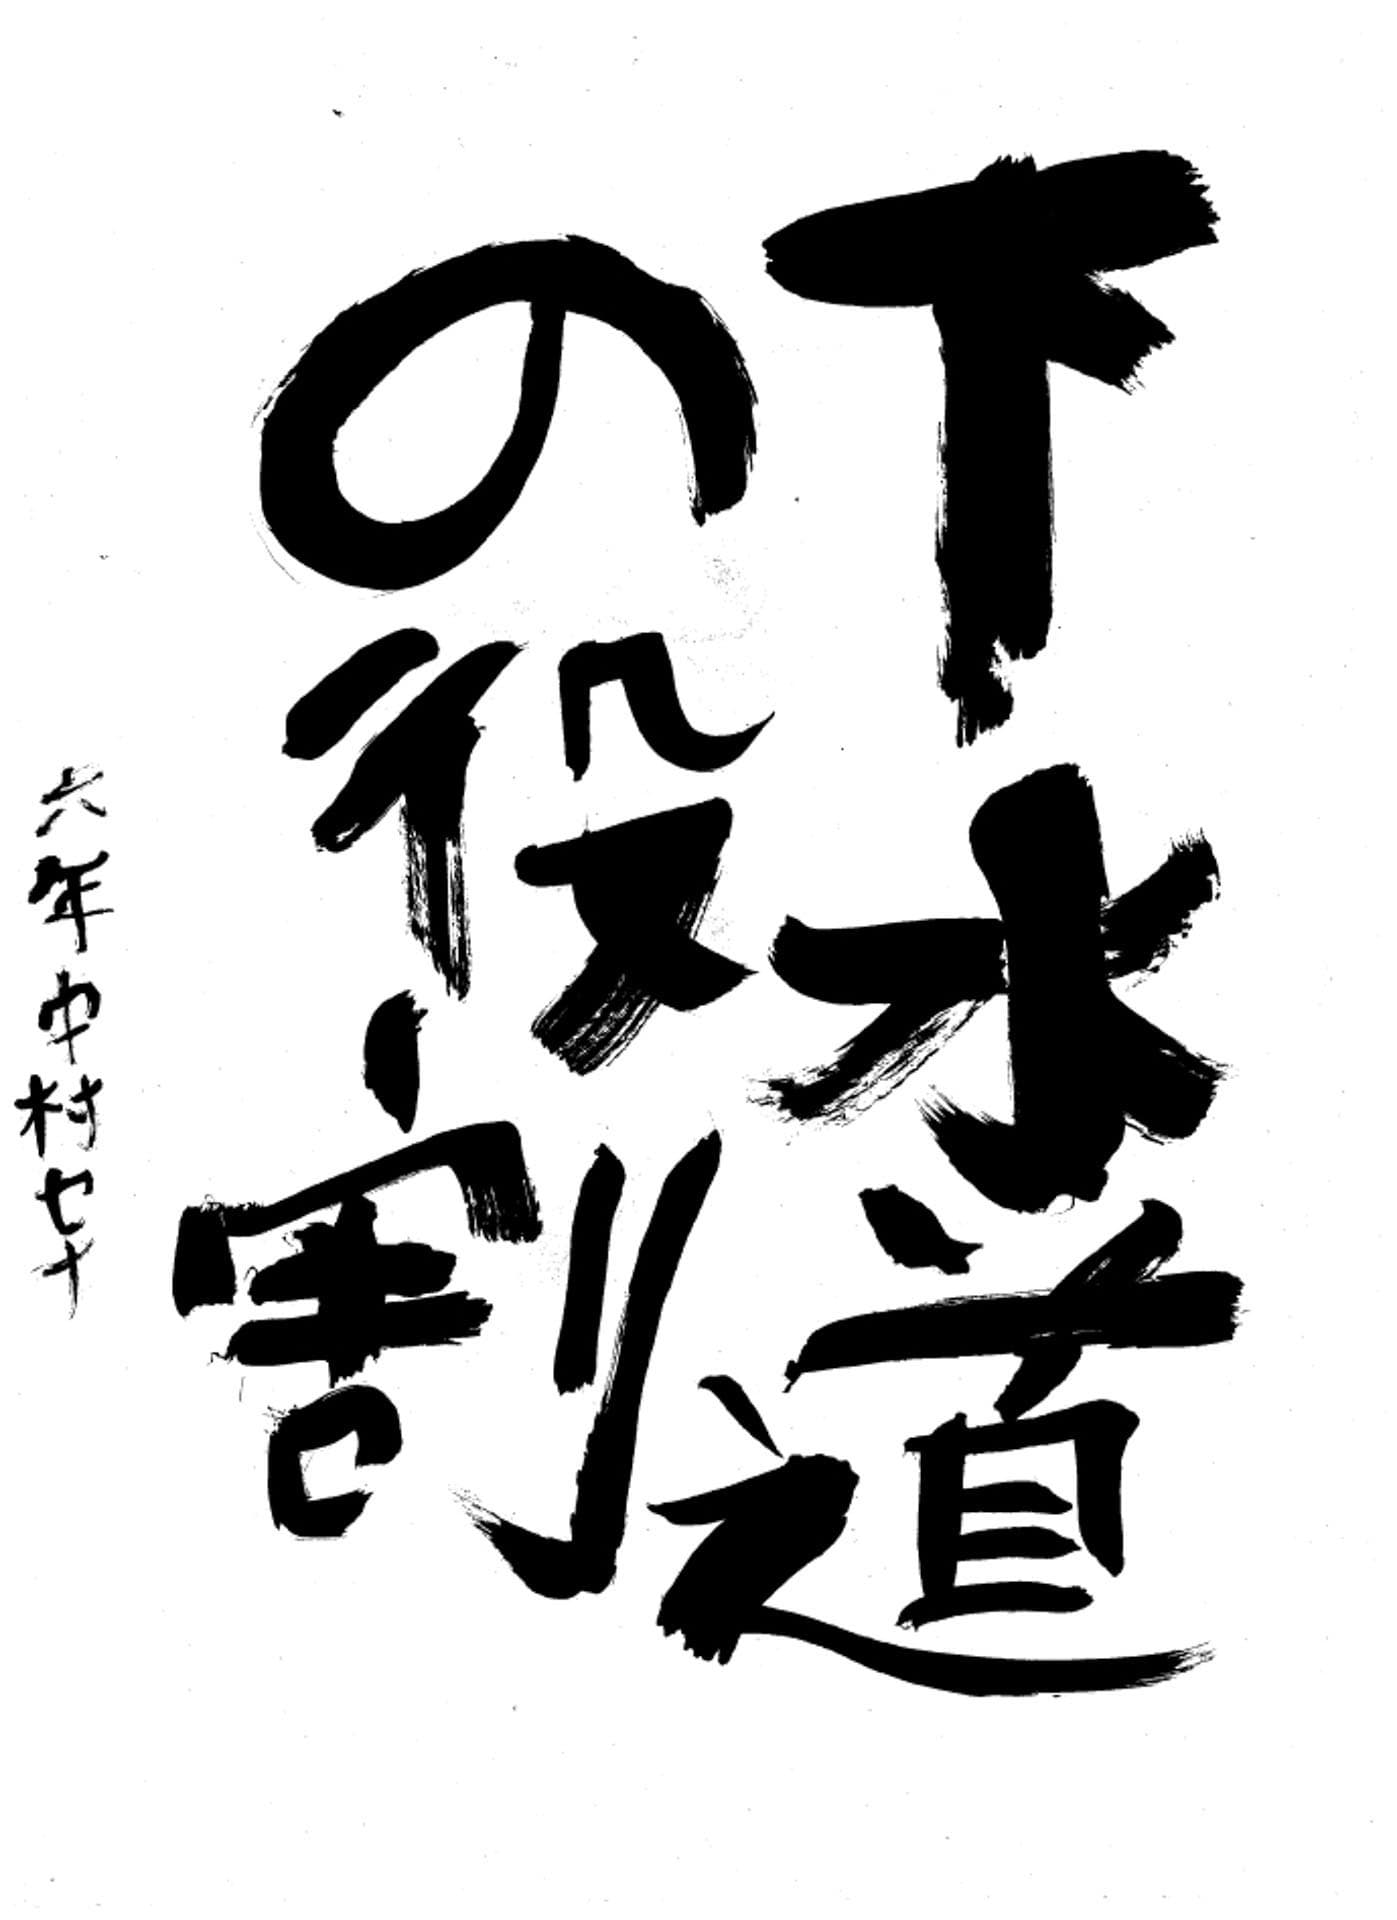 下水道
の役割
六年中村七十